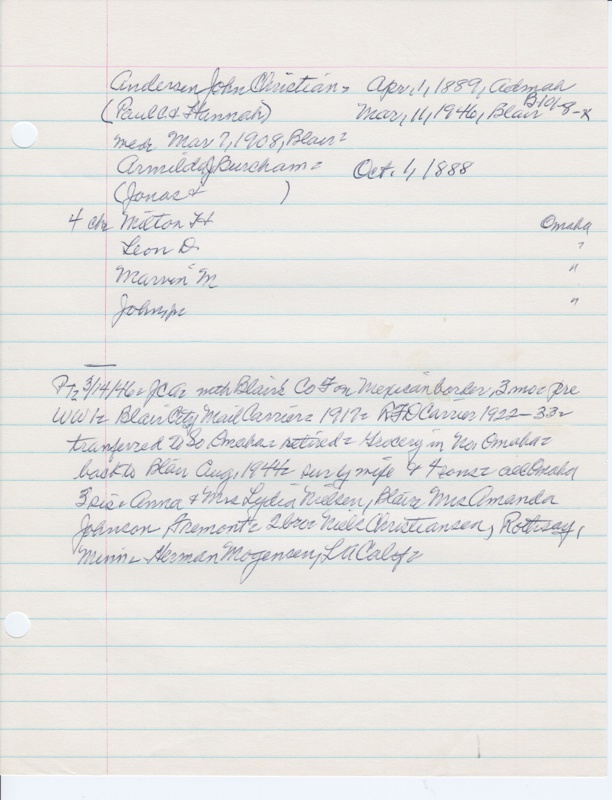 Andersen John Christian - Apr, 1, 1889, Admah
(Paul C & Hannah) Mar, 11, 1946, Blair B101-8-x
med. Mar 7, 1908, Blair -
Armilda J Burcham - Oct. 1, 1888
(Jonas & )
4 chr Milton H Omaha
Leon D. "
Marvin M "
John jr "
PT 3/14/46 - JCA - with Blair's Co F on Mexican border, 3 mo - pre
WW 1 - Blair City Mail Carrier - 1917 - RFD Carrier 1922-33 -
tranferred to So. Omaha - retired - Grocery in No. Omaha -
back to Blair Aug, 1944 - surv by wife & 4 sons - all Omaha
3 sis - Anna & Mrs Lydia Nielsen, Blair Mrs Amanda
Johnson Fremont - 2 bro - Niels Christiansen, Rothsay,
Minn - Herman Mogensen, LA Calif -